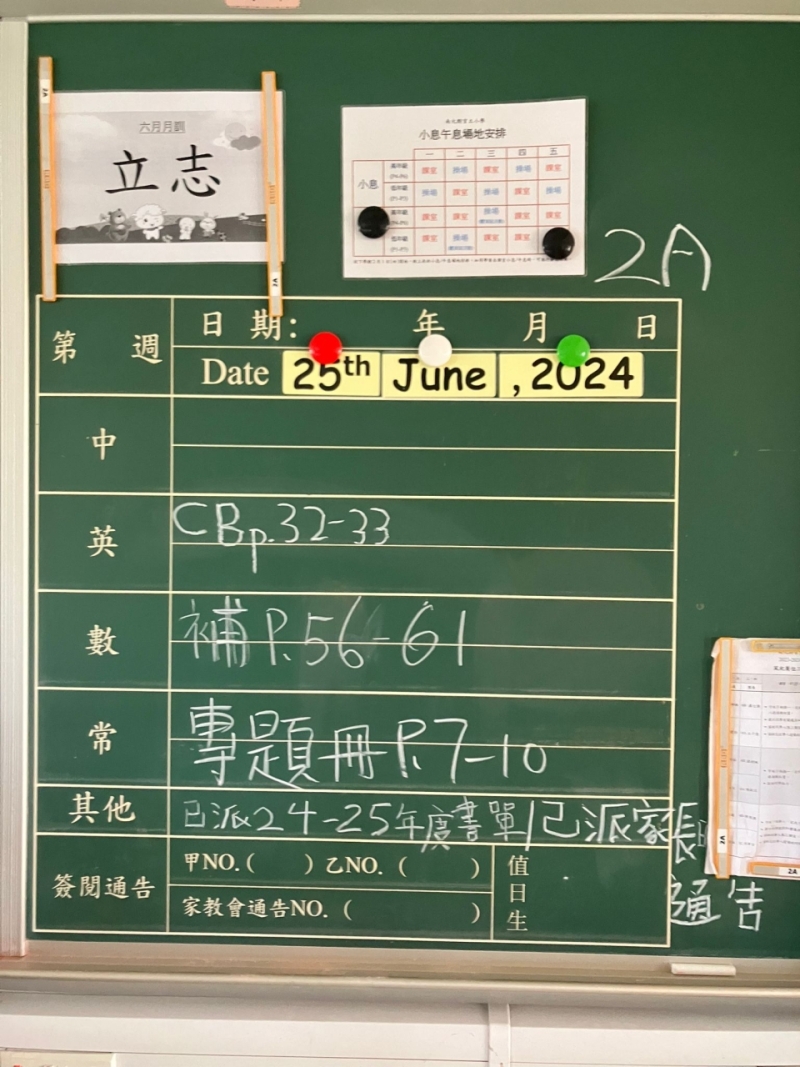 六月月訓
立志
小息午息場地安排
一 二 三 四 五
小息
高年級 (P4-P6) 課室 操場 課室 操場 課室
低年級 (P1-P3) 操場 課室 操場 課室 操場
課室 課室 操場 課室 課室
低年級 課室 操場 課室 課室
2A
第 週
日期: 年 月 日
Date 25th June , 2024
中
英
CB p.32-33
數
補 P.56-61
常
專題冊 P.7-10
其他
已派24-25年度書單/已派家長
通告
簽閱通告
甲NO.( ) 乙NO. ( )
家教會通告NO. ( )
值日生
2A